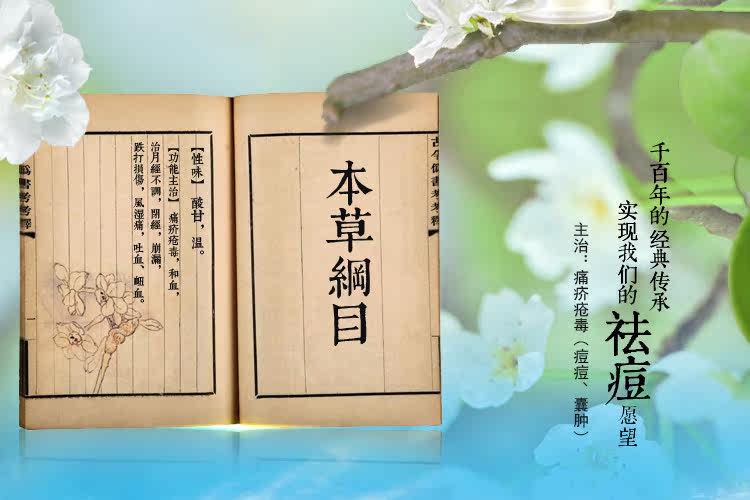 千百年的经典传承
实现我们的祛痘愿望
主治：痛疥疮毒（痘痘、囊肿）
本草綱目
【性味】酸甘，温。
【功能主治】痛疥疮毒，和血，
治月經不調，閉經，崩漏，
跌打損傷，風湿痛，吐血、衄血。